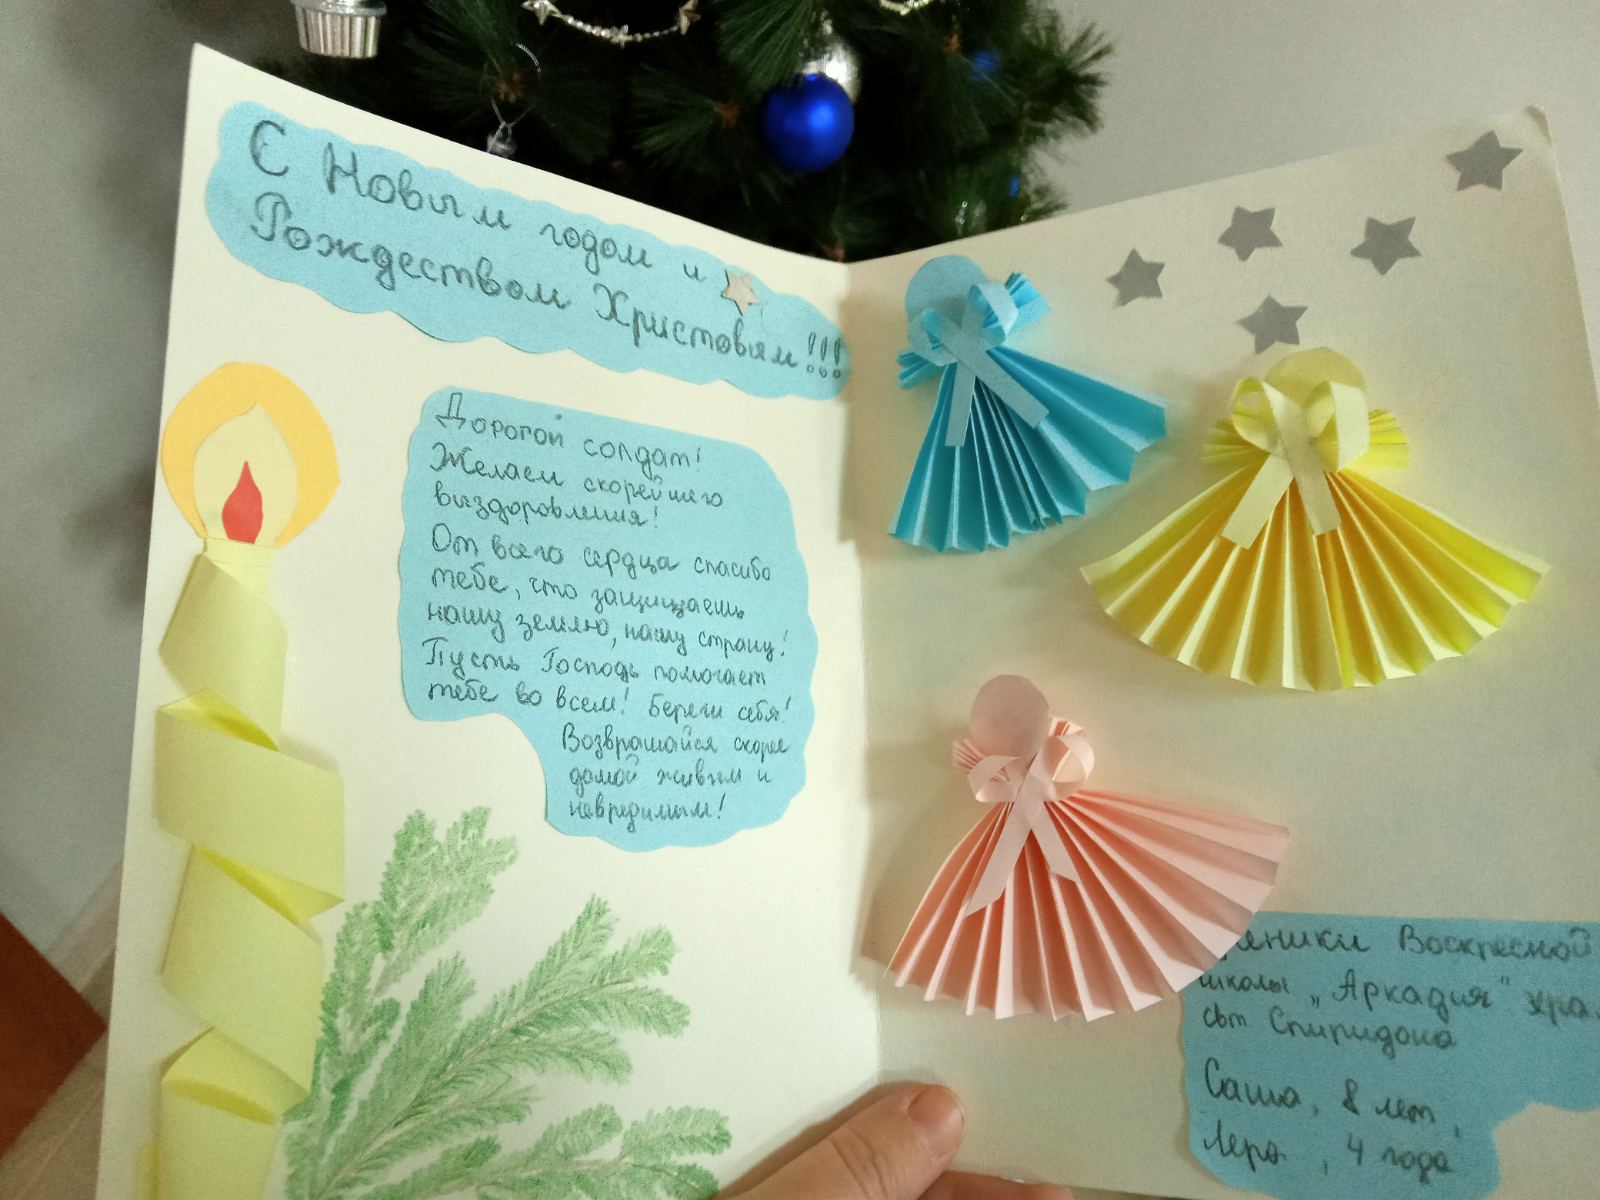 С Новым годом и
Рождеством Христовым!!!
Дорогой солдат!
Желаем скорейшего
выздоровления!
От всего сердца спасибо
тебе, что защищаешь
нашу землю, нашу страну!
Пусть Господь помогает
тебе во всем! Береги себя!
Возвращайся скорее
домой живым и
невредимым!
еники Воскресной
школы „Аркадия" хра
свт Спиридона
Саша, 8 лет,
Лера, 4 года